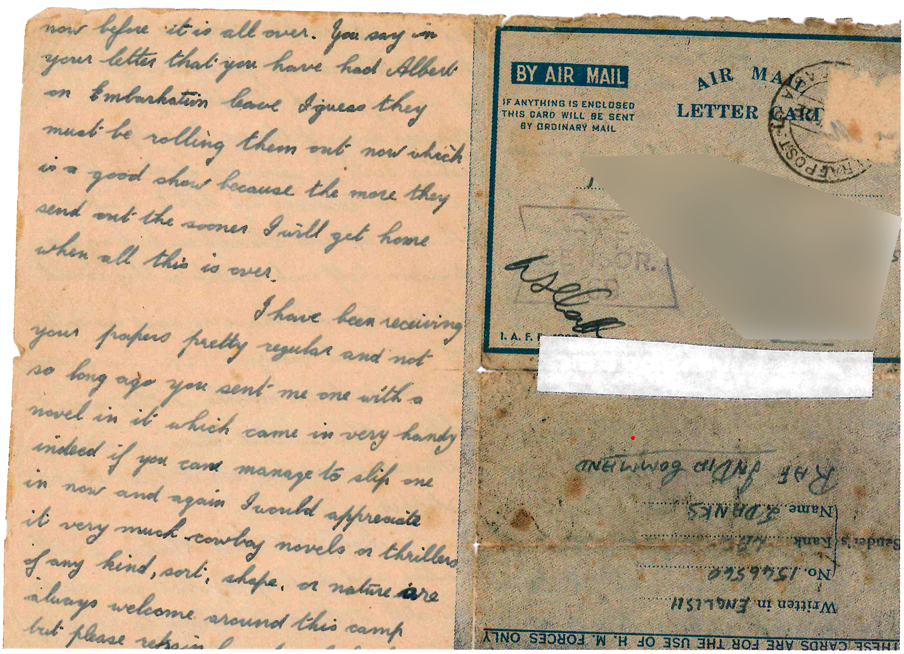 now before it is all over. You say in
your letter that you have had Albert
on Embarkation leave I guess they
must be rolling them out now which
is a good show because the more they
send out the sooner I will get home
when all this is over.
I have been receiving
your papers pretty regular and not
so long ago you sent me one with a
novel in it which came in very handy
indeed if you cant manage to slip one
in now and again I would appreciate
it very much cowboy novels or thrillers
of any kind, sort, shape, or nature are
always welcome around this camp
but please
BY AIR MAIL
IF ANYTHING IS ENCLOSED
THIS CARD WILL BE SENT
BY ORDINARY MAIL
AIR MAIL
LETTER CARD
RAF POST
I. A. F.
THESE CARDS ARE FOR THE USE OF H. M. FORCES ONLY
Written in ENGLISH
No. 1546560
Sender's Rank
Name J. DANKS
RAF INDIA COMMAND